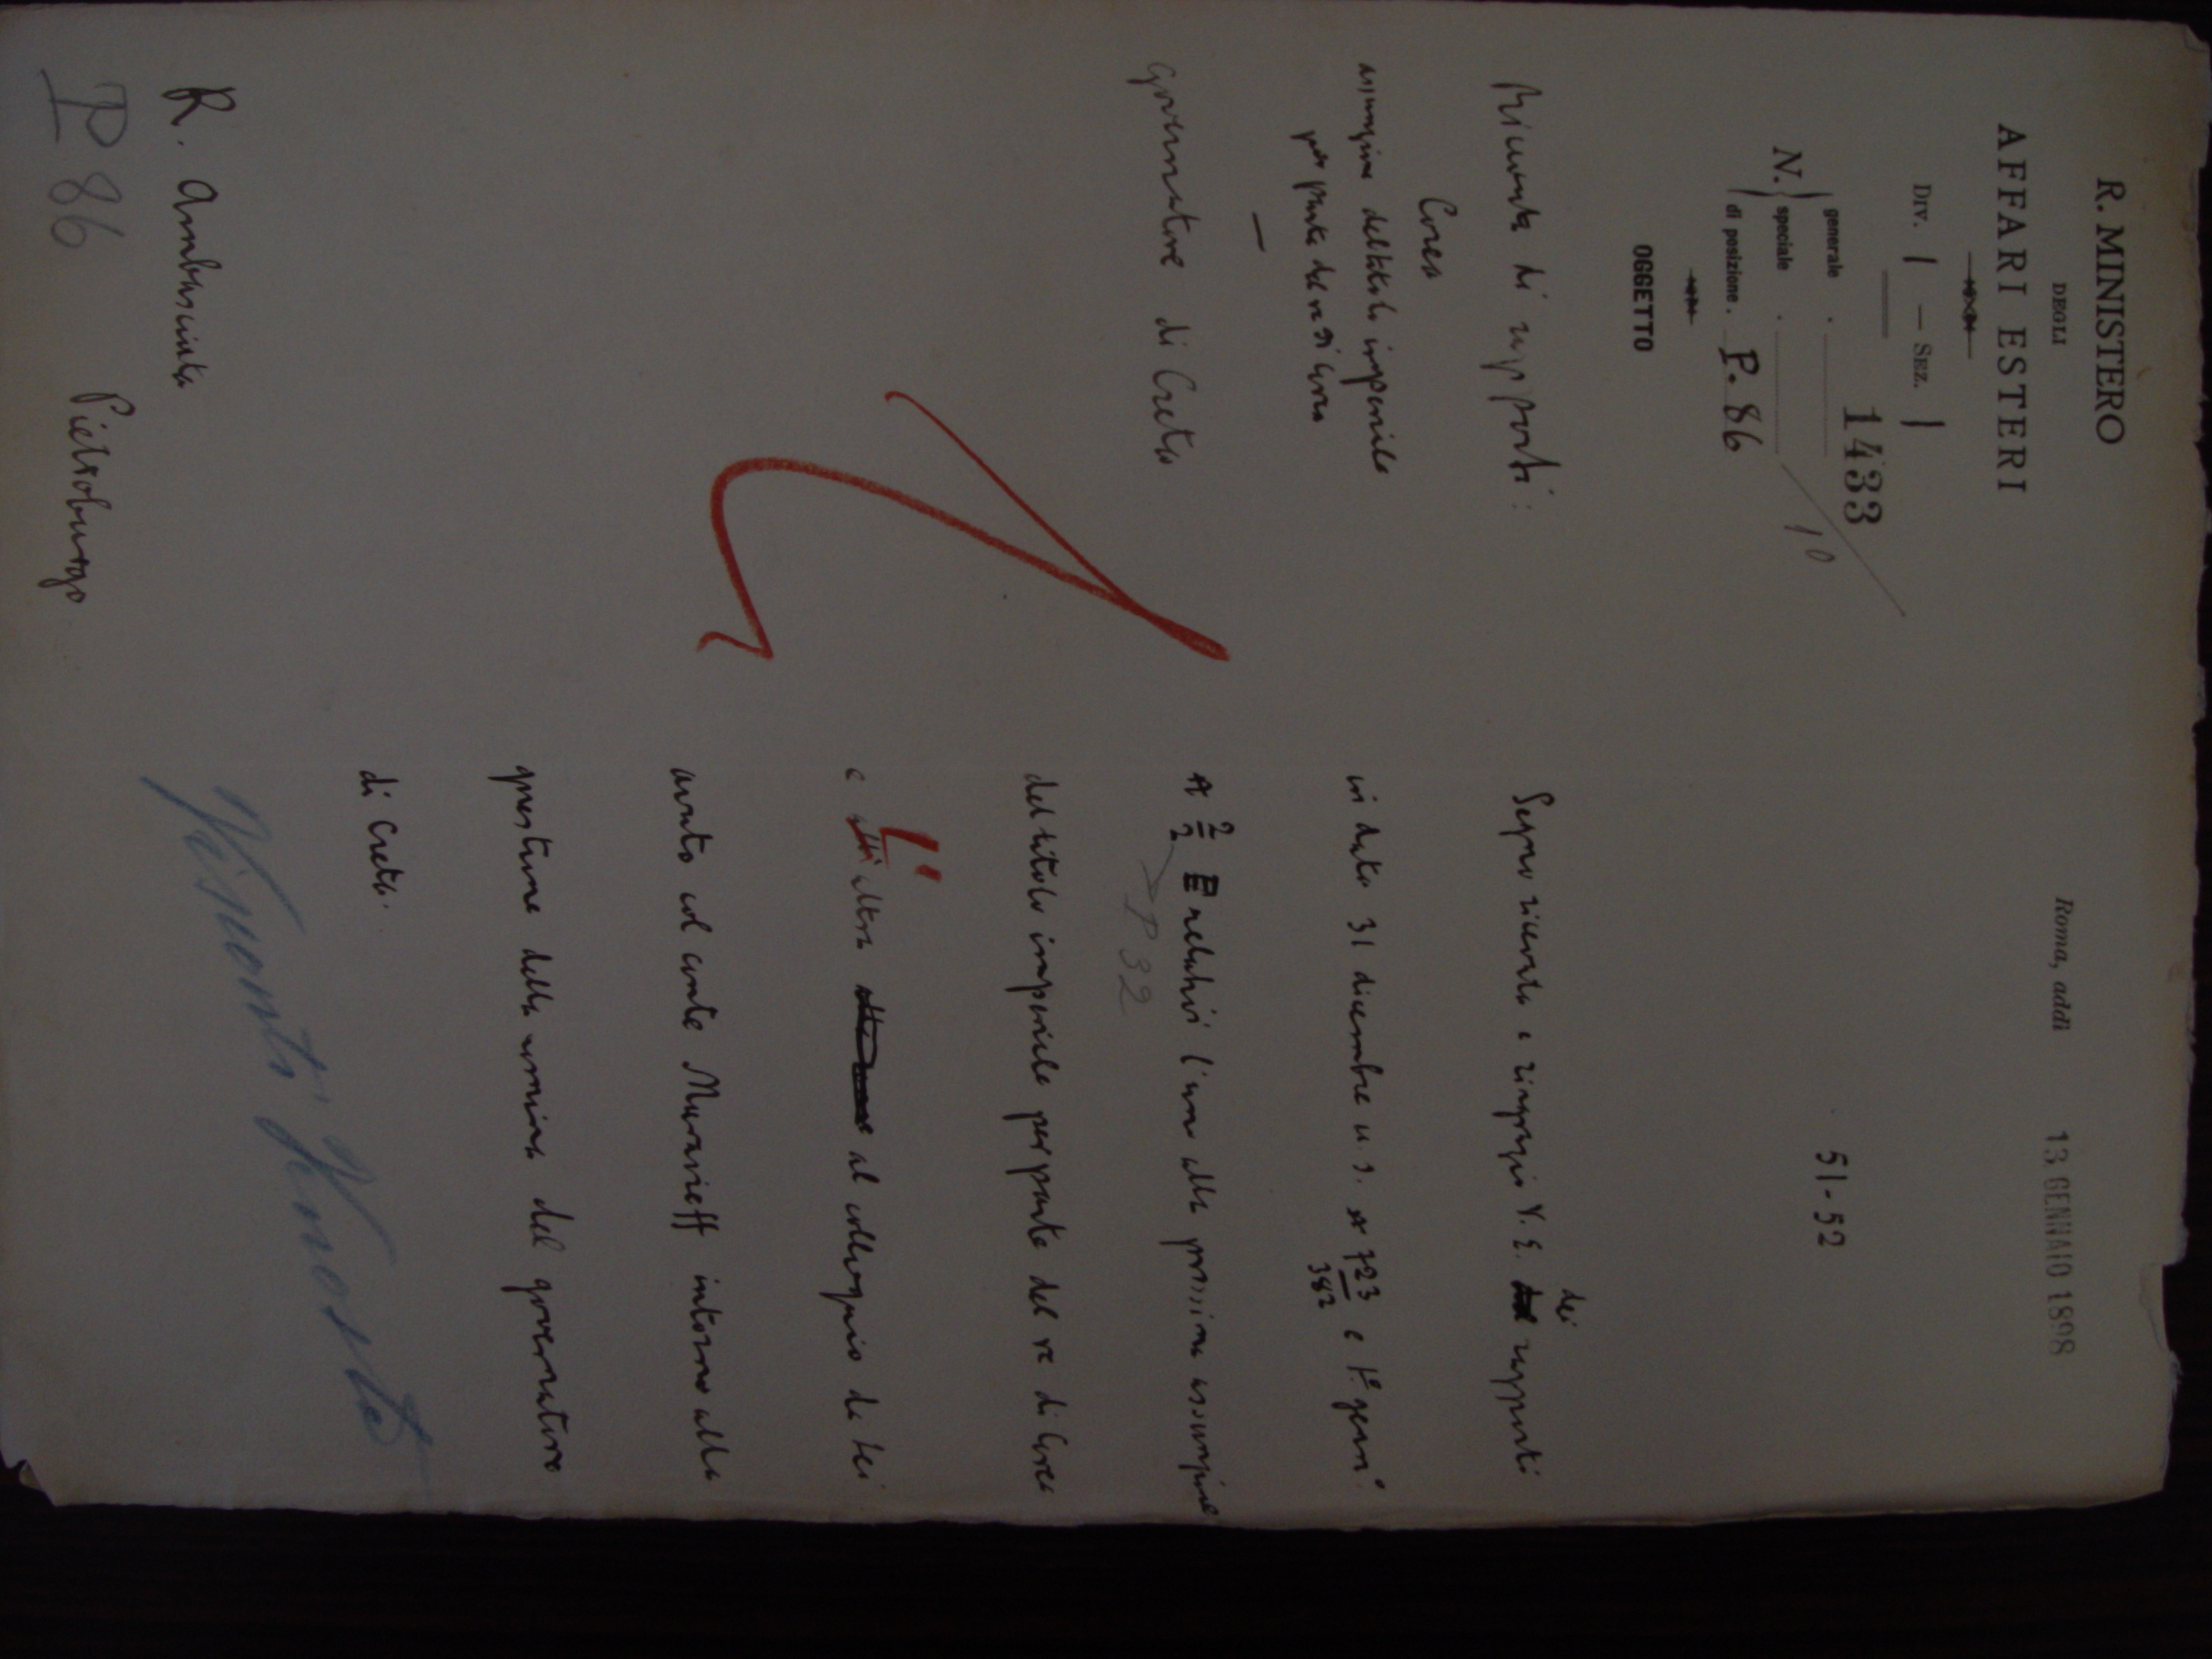 R. MINISTERO
DEGLI
AFFARI ESTERI
Roma, addì 13 GENNAIO 1898
DIV. I — SEZ. I
1433
N. generale
speciale 10
di posizione. P. 86
51-52
OGGETTO
Ricevuta di rapporti:
Corea
assunzione del titolo imperiale
per parte del re di Corea
—
Governatore di Creta
Segno ricevuta e ringrazio V. E. dei rapporti
in data 31 dicembre u. s. n 723/382 e 1º genn.º
n 2/2 relativi l'uno alla prossima assunzione
P 32
del titolo imperiale per parte del re di Corea
e l'altro al colloquio da Lei
avuto col conte Muravieff intorno alla
questione della nomina del governatore
di Creta.
Visconti Venosta
R. Ambasciata
Pietroburgo
P 86